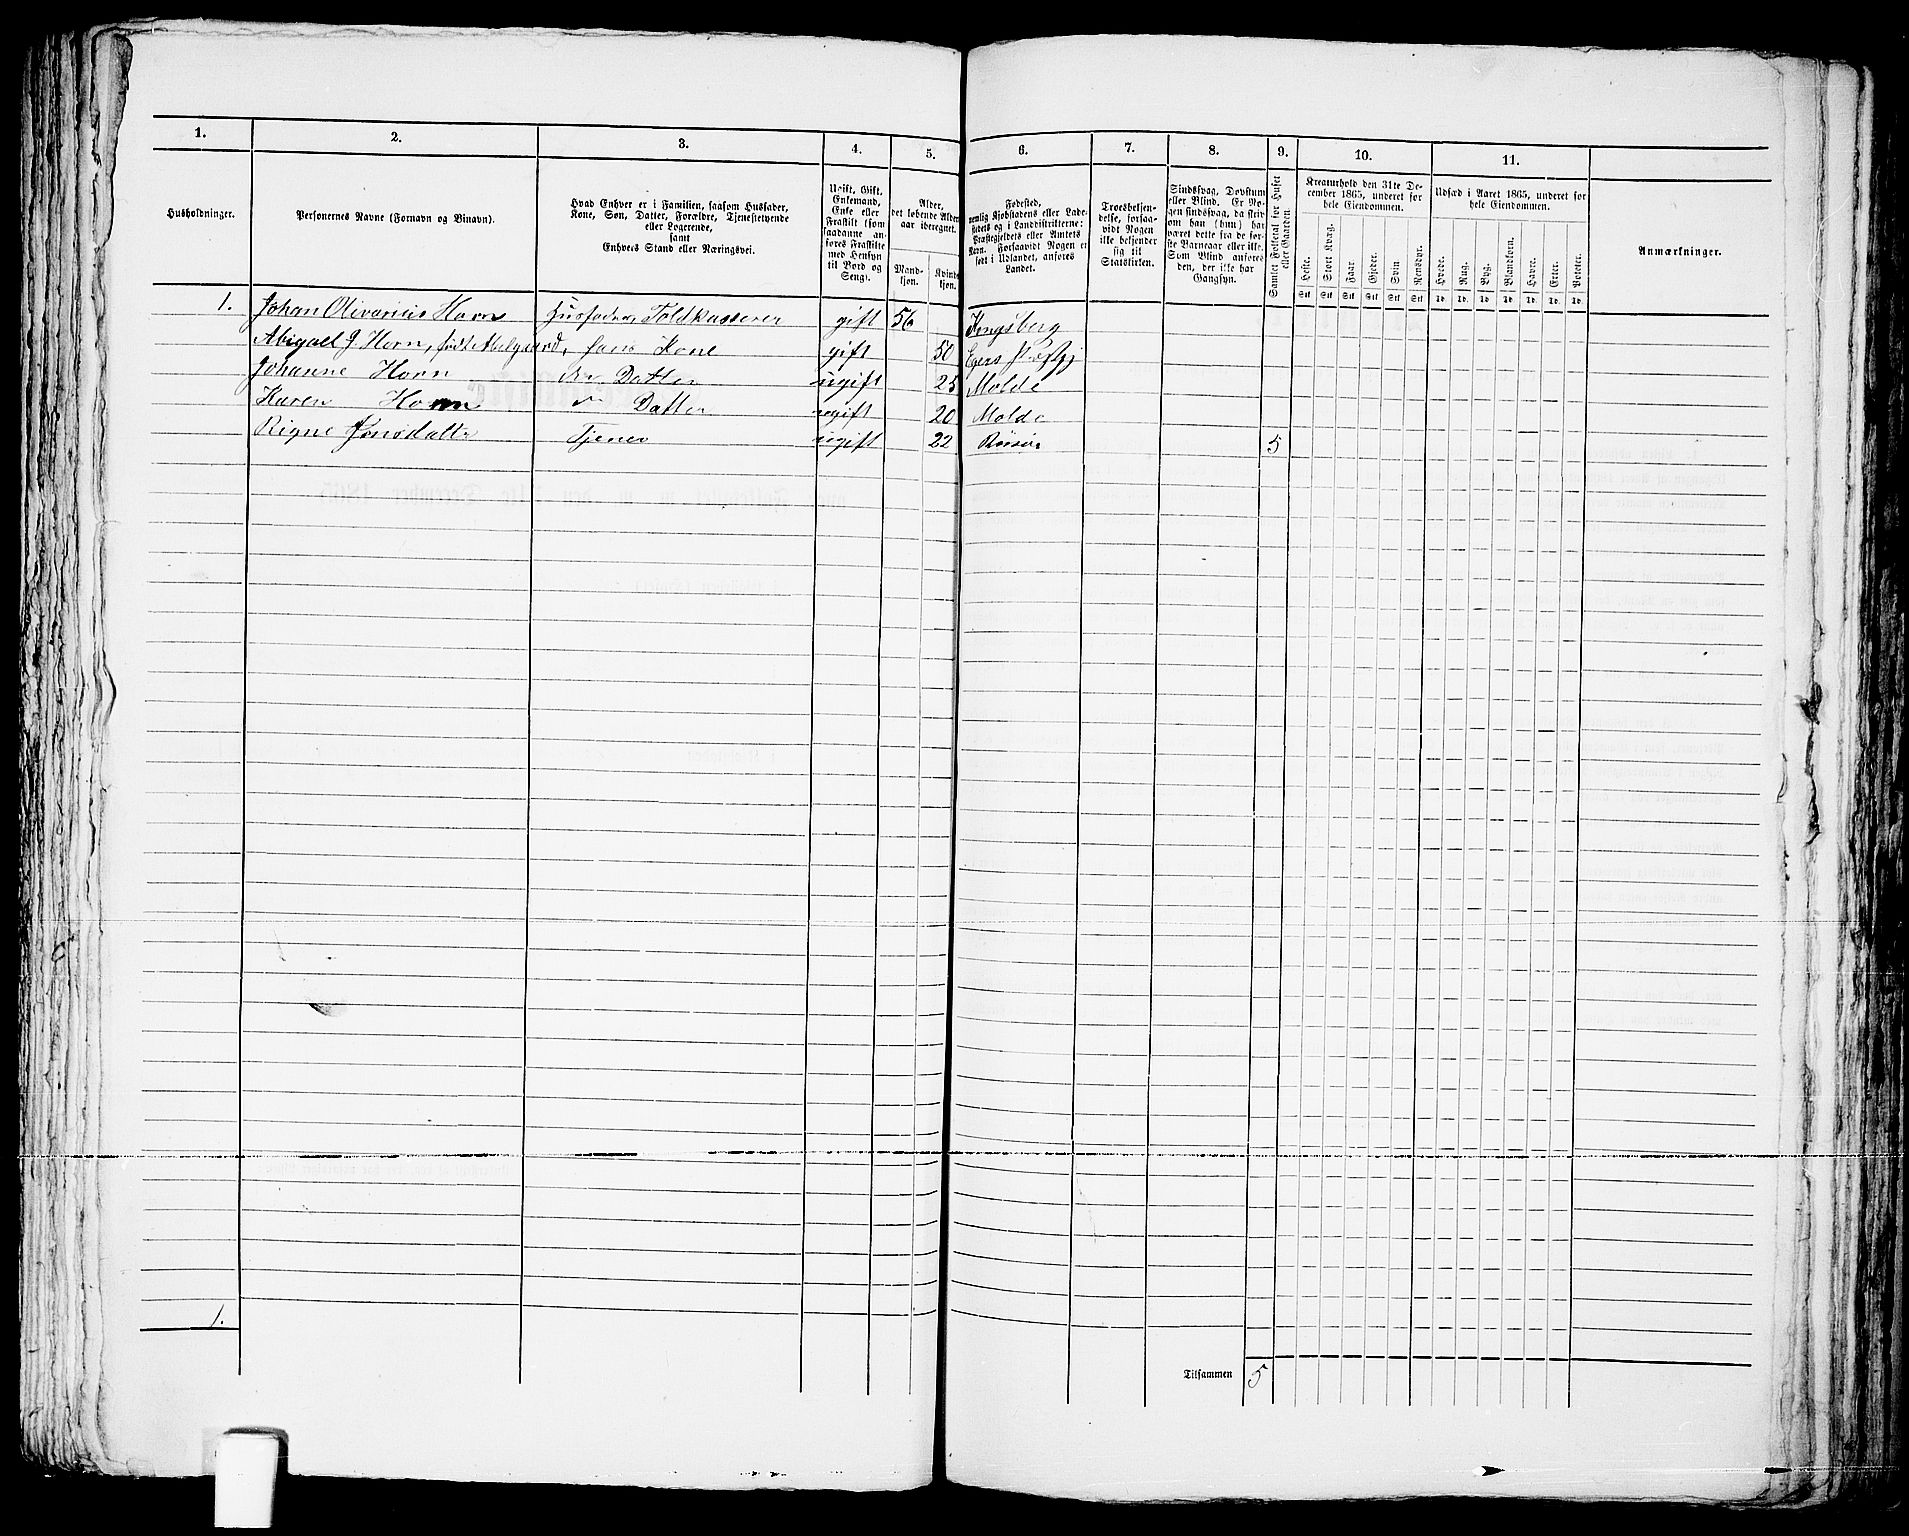 1. 2. 3. 4. 5. 6. 7. 8. 9. 10. 11.
Husholdninger.
Personernes Navne (Fornavn og Binavn).
Hvad Enhver er i Familien, saasom Husfader,
Kone, Søn, Datter, Forældre, Tjenestetyende
eller Logerende,
samt
Enhvers Stand eller Næringsvei.
Ugift, Gift,
Enkemand,
Enke eller
Fraskilt (som
saadanne an-
føres Fraskilte
med Hensyn
til Bord og
Seng).
Alder,
det løbende Alders-
aar iberegnet.
Mand-
kjøn.
Kvind-
kjøn.
Fødested,
nemlig Kjøbstadens eller Lade-
stedets og i Landdistrikterne:
Præstegjeldets eller Amtets
Navn. Forsaavidt Nogen er
født i Udlandet, anføres
Landet.
Troesbekjen-
delse, forsaa-
vidt Nogen
ikke bekjender
sig til
Statskirken.
Sindssvag, Døvstum
eller Blind. Er No-
gen sindssvag, da skriv
om han (hun) har
været dette fra de før-
ste Barneaar eller ikke.
Som Blind anføres
den, der ikke har
Gangsyn.
Samlet Folketal for Huset
eller Gaarden
Kreaturhold den 31te De-
cember 1865, underet for
hele Eiendommen.
Heste. Stort Kvæg. Faar. Gjeder. Svin. Rensdyr.
Stk Stk Stk Stk Stk Stk
Udsæd i Aaret 1865, underet for
hele Eiendommen.
Hvede. Rug. Byg. Blandkorn. Havre. Erter. Poteter.
Td. Td. Td. Td. Td. Td. Td.
Anmærkninger.
1. Johan Olivarius Horn Husfader, Toldkasserer gift 56 Kongsberg
Abigael J. Horn, født Abelgaard, hans Kone gift 50 Egers
Johanne Horn Datter ugift 25 Molde
Karen Horn Datter ugift 20 Molde
Jensdatter Tjener ugift 22 5
1.
Tilsammen 5